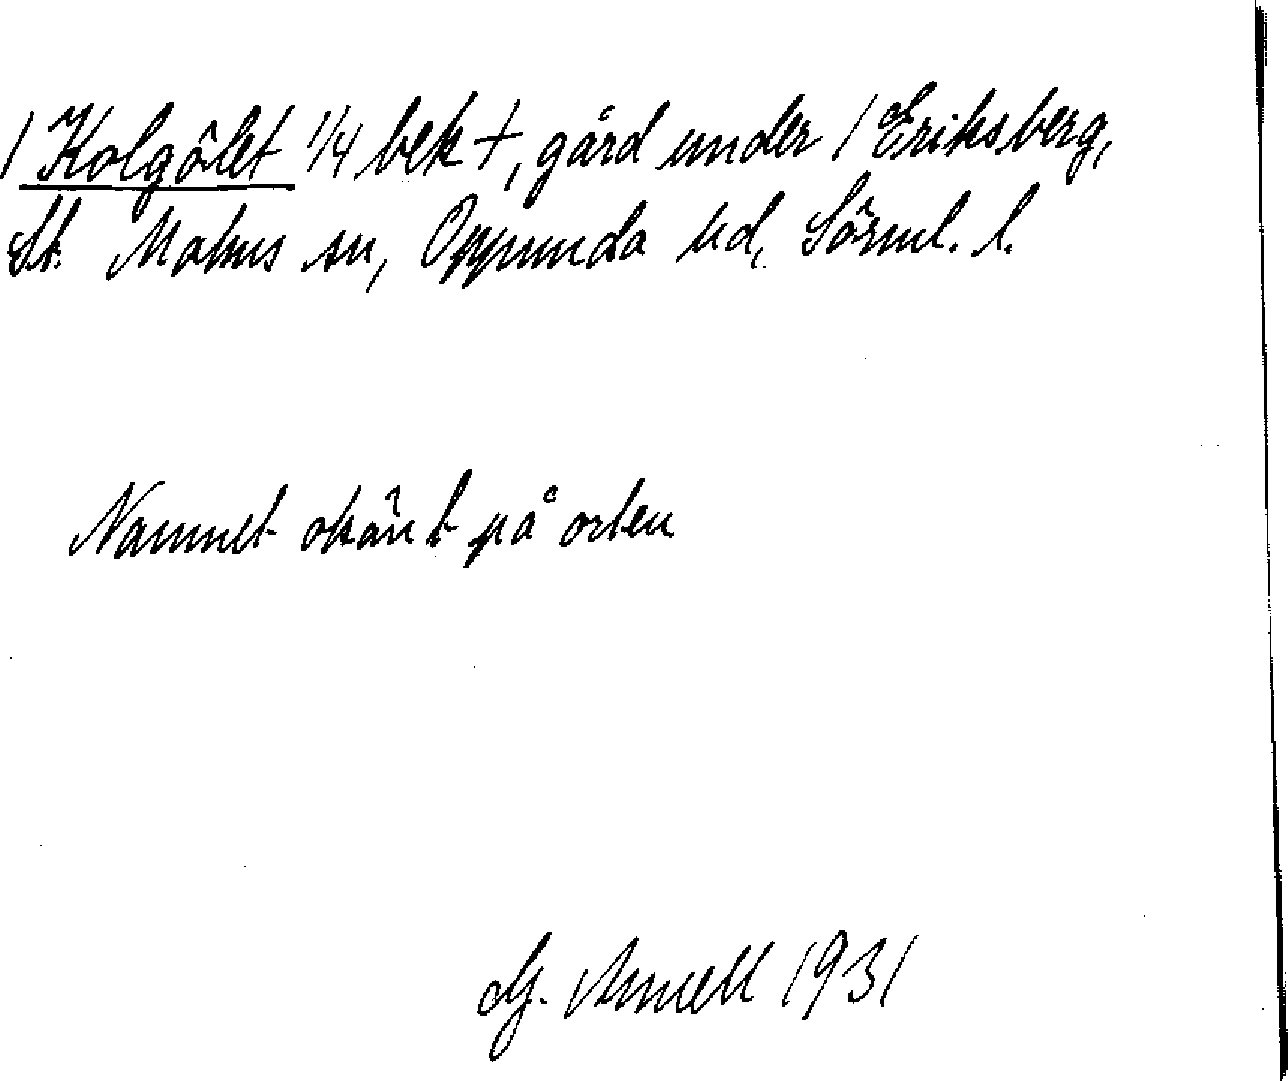 / Kolgölet 1/4 bek +, gård under / Eriksberg,
St. Malms sn, Oppunda hd, Sörml. l.
Namnet okänt på orten
G. Arnell 1931